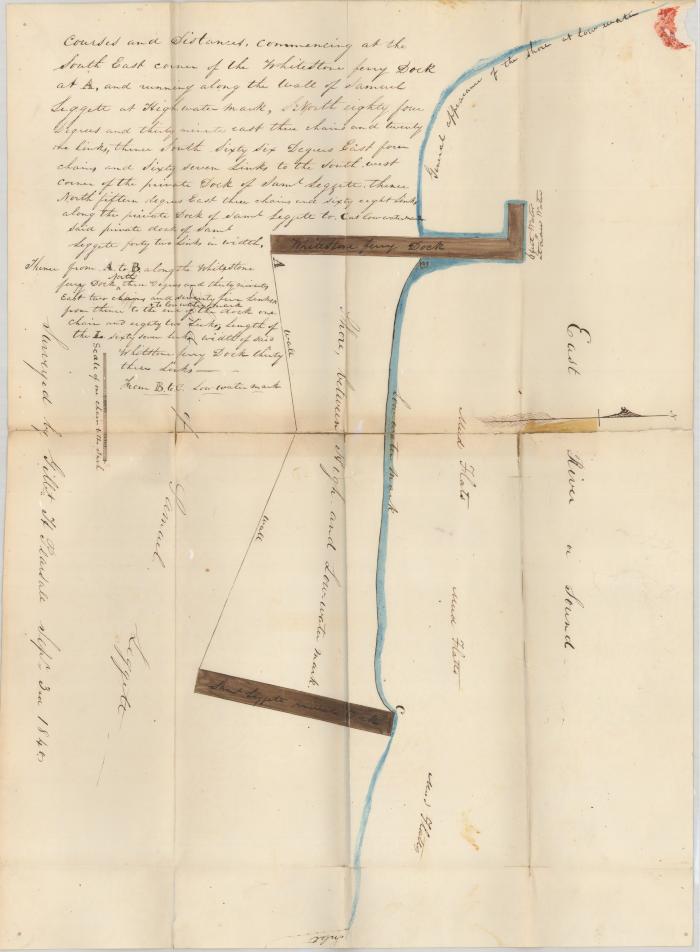 Courses and Distances, commencing at the
South East corner of the Whitestone ferry Dock
at A, and running along the wall of Samuel
Leggett at High water mark, North eighty four
degrees and thirty minute east three chains and twenty
one links, thence South Sixty six Degrees East four
chains and Sixty seven Links to the south west
corner of the private Dock of Saml Leggett, thence
North fifteen degrees East three chains and sixty eight Links
along the private Dock of Saml Leggett to C at low water mark
said private dock of Saml
Leggett forty two Links in width.
Thence from A to B along the Whitestone
ferry Dock North three Degrees and thirty minutes
East two chains and seventy five Links
from thence to the end of the dock one
to low water mark
chain and eighty two Links, length of
the L sixty seven links width of said
Whitestone ferry Dock thirty
three Links
From B to C. Low water mark
Scale of one chain to the Inch
Surveyed by Gilbt H Pearsall Sept 3rd 1840
General appearance of the shore at low water
Whitestone ferry Dock
A
B
wall
wall
of
Samuel
Leggett
Shore, between High and Low water mark.
Low water mark
C
Saml Leggett private Dock
Mud Flatts
Mud Flatts
Mud Flatts
East River or Sound